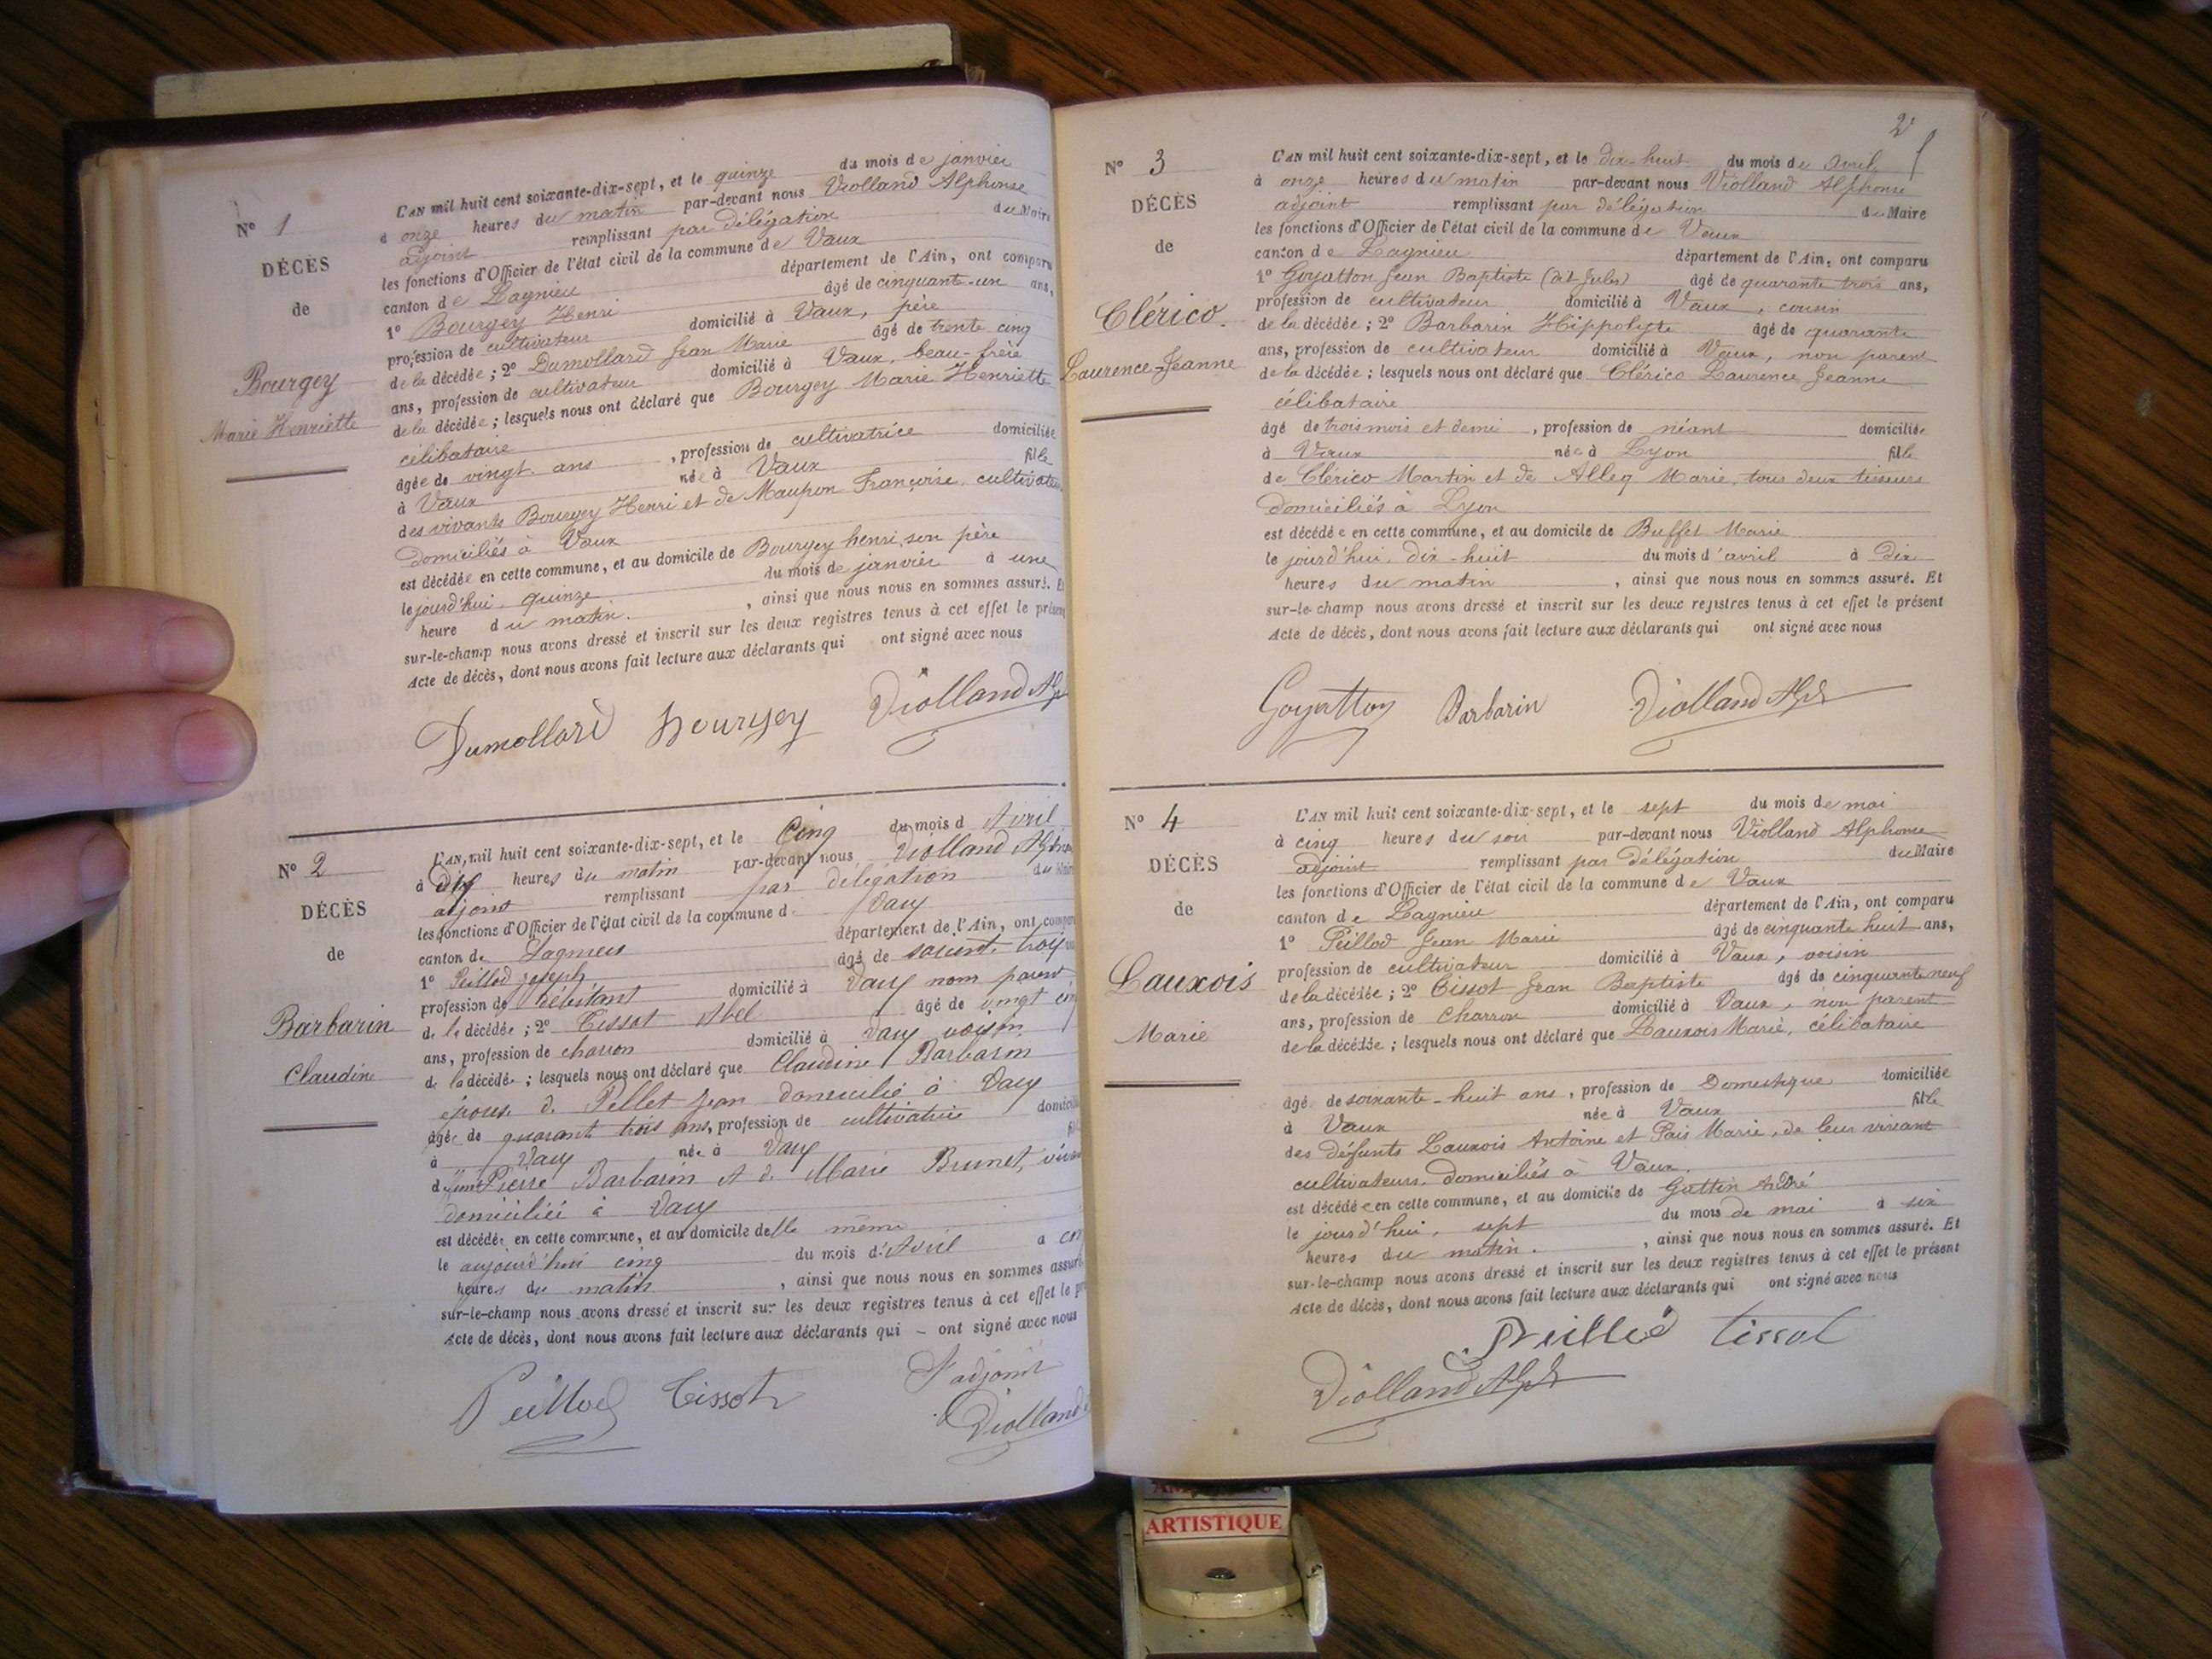 N° 1
DÉCÈS
de
Bourgey
Marie Henriette
L'AN mil huit cent soixante-dix-sept, et le quinze du mois de janvier
à onze heures du matin par-devant nous Violland Alphonse
adjoint remplissant par délégation du Maire
les fonctions d'Officier de l'état civil de la commune de Vaux
canton de Lagnieu département de l'Ain, ont comparu
1° Bourgey Henri âgé de cinquante-un ans,
profession de cultivateur domicilié à Vaux, père
de la décédée ; 2° Dumollard Jean Marie âgé de trente cinq
ans, profession de cultivateur domicilié à Vaux, beau-frère
de la décédée ; lesquels nous ont déclaré que Bourgey Marie Henriette
célibataire
âgée de vingt ans, profession de cultivatrice domiciliée
à Vaux née à Vaux fille
des vivants Bourgey Henri et de Maupon Françoise, cultivateurs
domiciliés à Vaux
est décédée en cette commune, et au domicile de Bourgey henri, son père
le jourd'hui quinze du mois de janvier à une
heure du matin, ainsi que nous nous en sommes assuré. Et
sur-le-champ nous avons dressé et inscrit sur les deux registres tenus à cet effet le présent
Acte de décès, dont nous avons fait lecture aux déclarants qui ont signé avec nous
Dumollard Bourgey Violland Alph
N° 2
DÉCÈS
de
Barbarin
Claudine
L'AN mil huit cent soixante-dix-sept, et le Cinq du mois d Avril
à dix heures du matin par-devant nous Violland Alphonse
adjoint remplissant par delegation du Maire
les fonctions d'Officier de l'état civil de la commune d. Vaux
canton de Lagnieu département de l'Ain, ont comparu
1° Peillod joseph âgé de soixante trois ans
profession de débitant domicilié à Vaux nom parent
de la décédée ; 2° Tissot Abel âgé de vingt cinq
ans, profession de charron domicilié à Vaux voisin
de la décédée ; lesquels nous ont déclaré que Claudine Barbarin
épouse de Pellet Jean domicilié à Vaux
âgée de quarante trois ans, profession de cultivatrice
à Vaux née à Vaux
défunt Pierre Barbarin et de Marie Brunet,
domiciliée à Vaux
est décédée en cette commune, et au domicile d elle même
le aujourd'hui cinq du mois d'Avril à
heures du matin, ainsi que nous nous en sommes assuré
sur-le-champ nous avons dressé et inscrit sur les deux registres tenus à cet effet le
Acte de décès, dont nous avons fait lecture aux déclarants qui – ont signé avec nous
Peillod Tissot L'adjoint
Violland
2
N° 3
DÉCÈS
de
Clérico
Laurence-Jeanne
L'AN mil huit cent soixante-dix-sept, et le dix-huit du mois de avril
à onze heures du matin par-devant nous Violland Alphonse
adjoint remplissant par délégation du Maire
les fonctions d'Officier de l'état civil de la commune de Vaux
canton de Lagnieu département de l'Ain, ont comparu
1° Goyatton Jean Baptiste (dit Jules) âgé de quarante trois ans,
profession de cultivateur domicilié à Vaux, cousin
de la décédée ; 2° Barbarin Hippolyte âgé de quarante
ans, profession de cultivateur domicilié à Vaux, non parent
de la décédée ; lesquels nous ont déclaré que Clérico Laurence Jeanne
célibataire
âgé de trois mois et demi, profession de néant domiciliée
à Vaux née à Lyon fille
de Clérico Martin et de Alleq Marie, tous deux tisseurs
domiciliés à Lyon
est décédée en cette commune, et au domicile de Buffet Marie
le jourd'hui, dix-huit du mois d'avril à dix
heures du matin, ainsi que nous nous en sommes assuré. Et
sur-le-champ nous avons dressé et inscrit sur les deux registres tenus à cet effet le présent
Acte de décès, dont nous avons fait lecture aux déclarants qui ont signé avec nous
Goyatton Barbarin Violland Alph
N° 4
DÉCÈS
de
Lauxois
Marie
L'AN mil huit cent soixante-dix-sept, et le sept du mois de mai
à cinq heures du soir par-devant nous Violland Alphonse
adjoint remplissant par délégation du Maire
les fonctions d'Officier de l'état civil de la commune de Vaux
canton de Lagnieu département de l'Ain, ont comparu
1° Peillod Jean Marie âgé de cinquante huit ans,
profession de cultivateur domicilié à Vaux, voisin
de la décédée ; 2° Tissot Jean Baptiste âgé de cinquante neuf
ans, profession de charron domicilié à Vaux, non parent
de la décédée ; lesquels nous ont déclaré que Lauxois Marie, célibataire
âgé de soixante-huit ans, profession de Domestique domiciliée
à Vaux née à Vaux fille
des défunts Lauxois Antoine et Pais Marie, de leur vivant
cultivateurs, domiciliés à Vaux.
est décédée en cette commune, et au domicile de Guttin André
le jourd'hui, sept du mois de mai à six
heures du matin, ainsi que nous nous en sommes assuré. Et
sur-le-champ nous avons dressé et inscrit sur les deux registres tenus à cet effet le présent
Acte de décès, dont nous avons fait lecture aux déclarants qui ont signé avec nous
tissot
Violland Alph
ARTISTIQUE